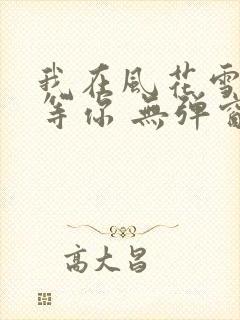 我在風花雪
等你 無彈窗
高大昌